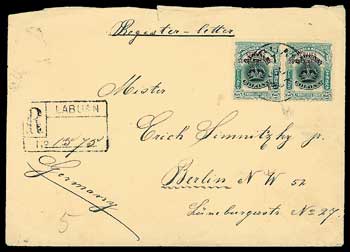 Register-letter
Mister
LABUAN
Erich Simnitzky jr.
Berlin N W 52
Lüneburgerstr No 27.
Germany
5